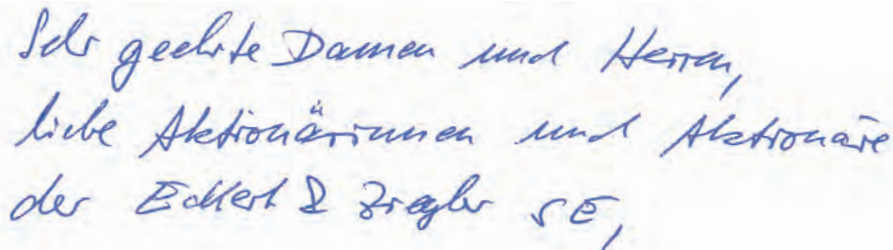 Sehr geehrte Damen und Herren,
liebe Aktionärinnen und Aktionäre
der Eckert & Ziegler SE,